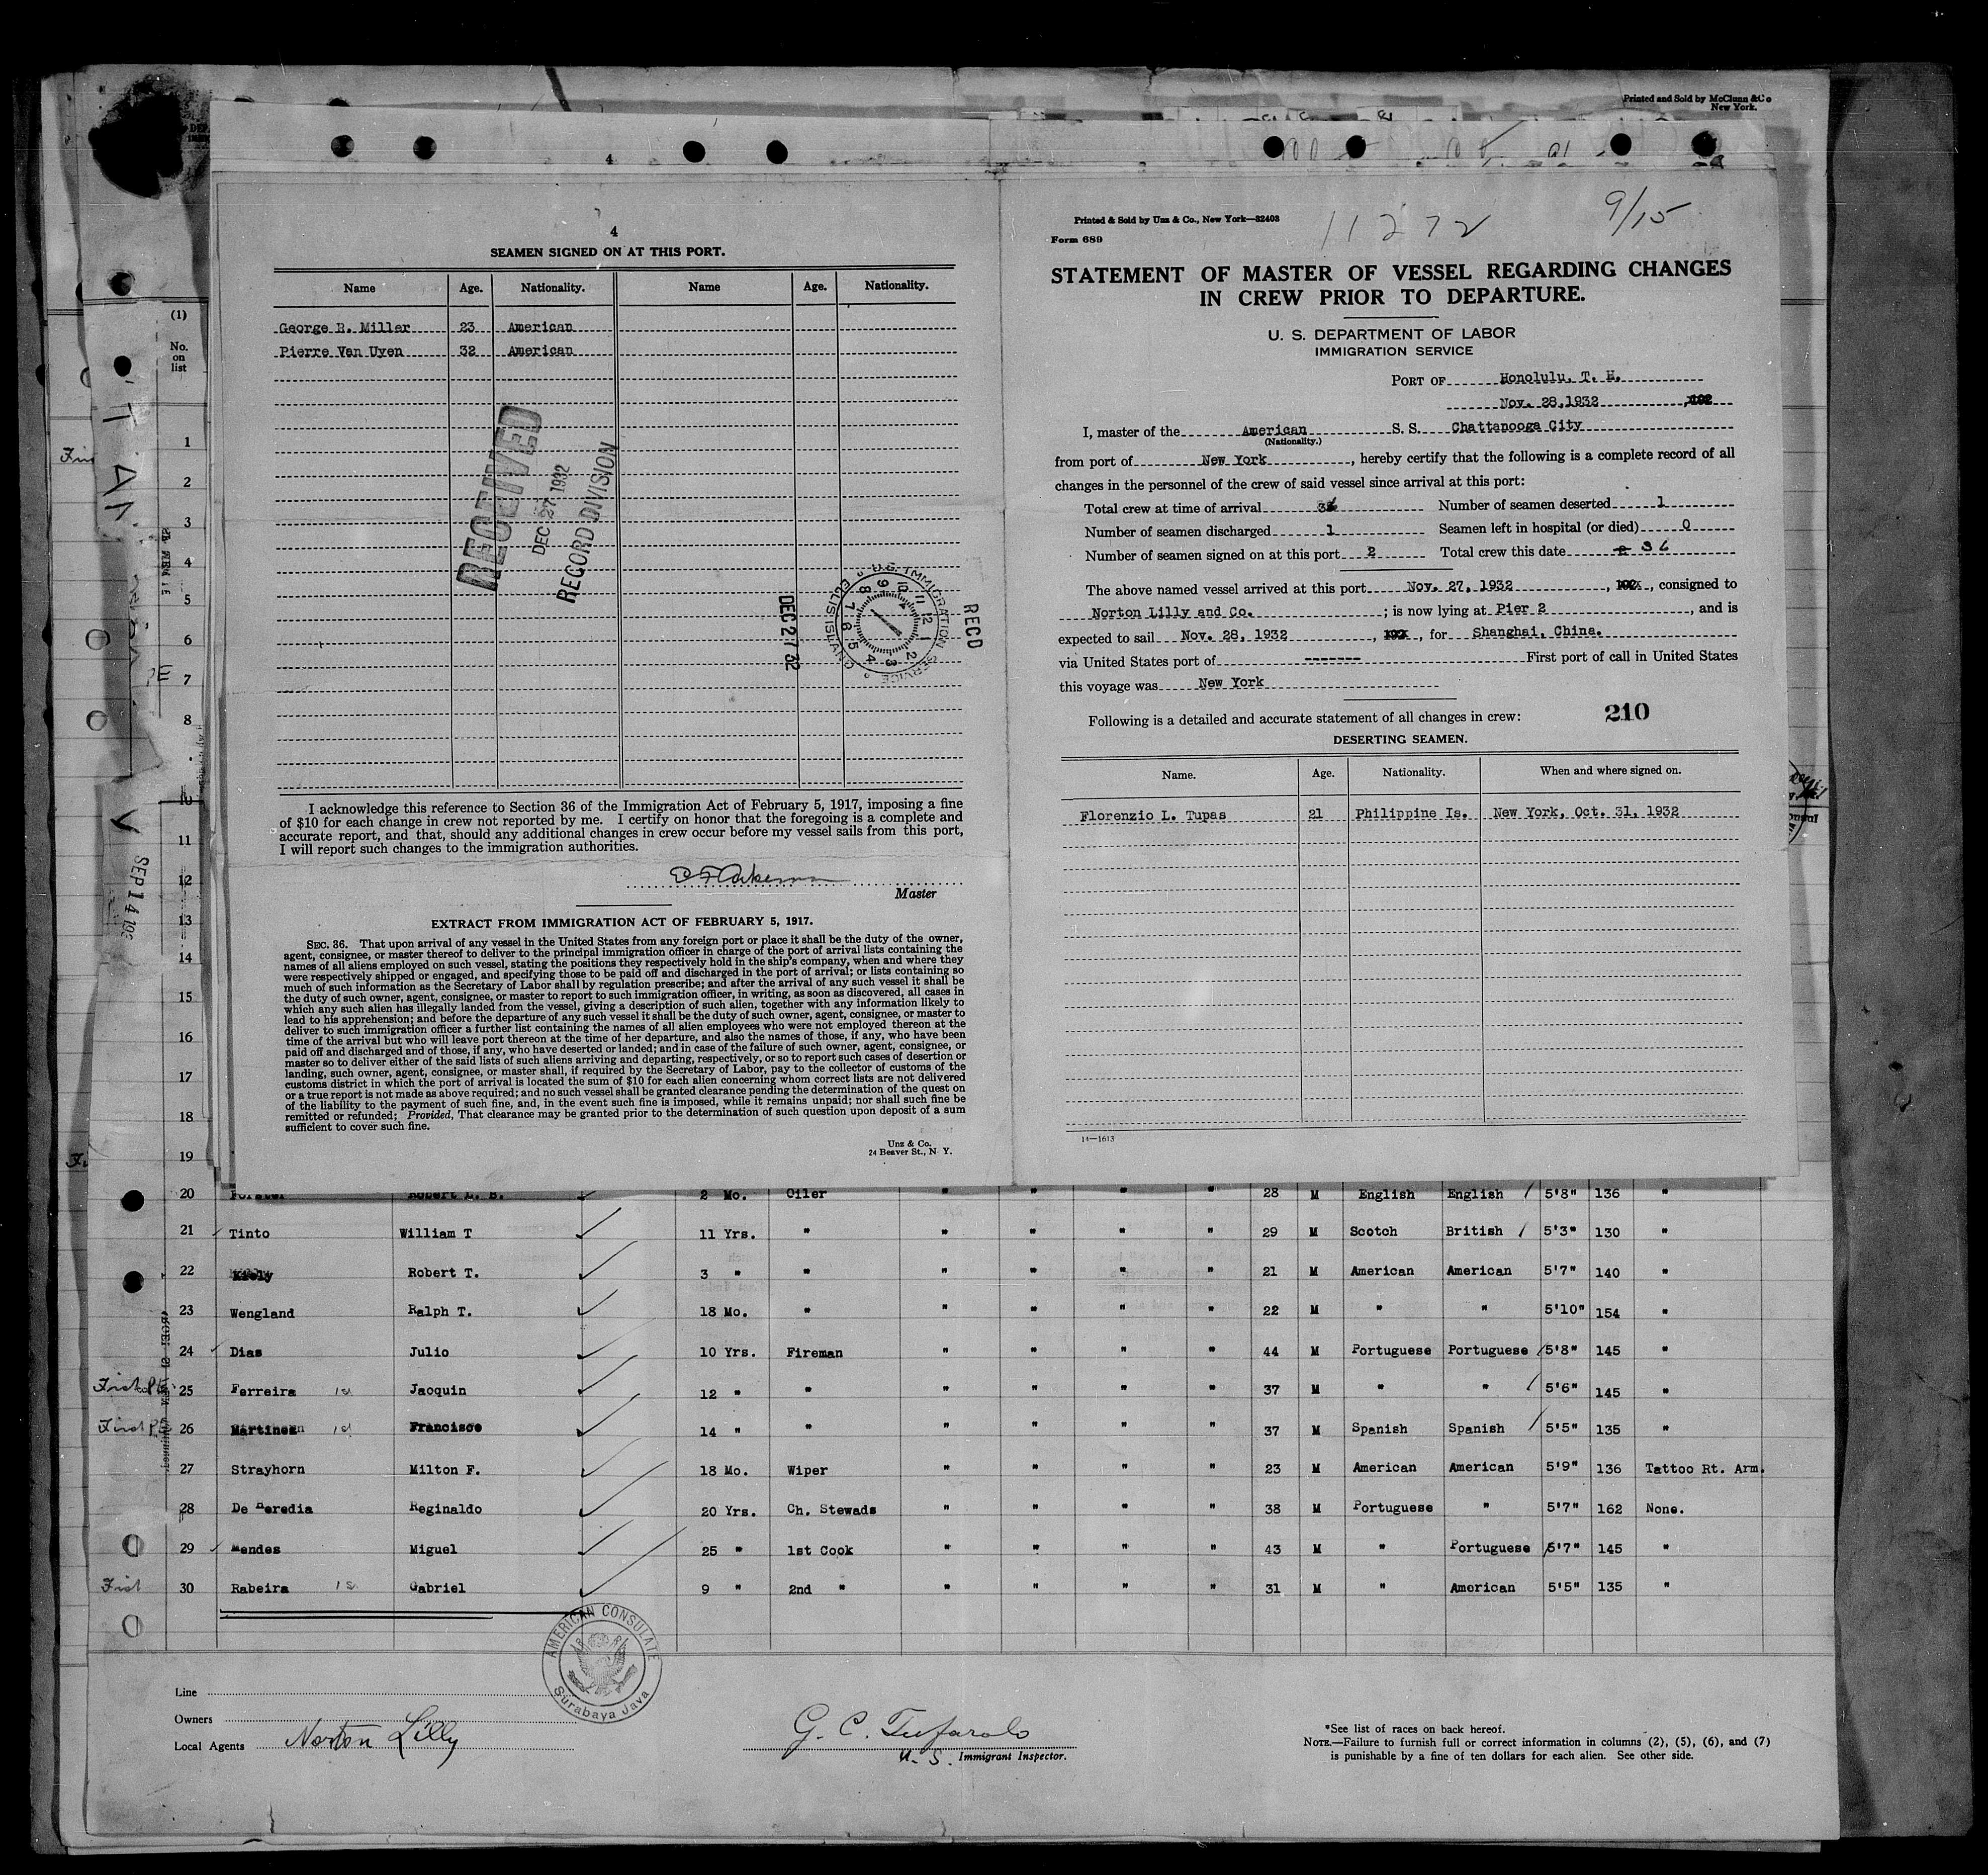 Printed and Sold by McClunn & Co
New York.
4
4
SEAMEN SIGNED ON AT THIS PORT.
Name Age. Nationality. Name Age. Nationality.
George R. Miller 23 American
Pierre Van Uyen 32 American
RECEIVED
DEC 27 1932
RECORD DIVISION
DEC 27 32
U.S. IMMIGRATION SERVICE
ELLIS ISLAND
RECD
I acknowledge this reference to Section 36 of the Immigration Act of February 5, 1917, imposing a fine
of $10 for each change in crew not reported by me. I certify on honor that the foregoing is a complete and
accurate report, and that, should any additional changes in crew occur before my vessel sails from this port,
I will report such changes to the immigration authorities.
Master
EXTRACT FROM IMMIGRATION ACT OF FEBRUARY 5, 1917.
SEC. 36. That upon arrival of any vessel in the United States from any foreign port or place it shall be the duty of the owner,
agent, consignee, or master thereof to deliver to the principal immigration officer in charge of the port of arrival lists containing the
names of all aliens employed on such vessel, stating the positions they respectively hold in the ship's company, when and where they
were respectively shipped or engaged, and specifying those to be paid off and discharged in the port of arrival; or lists containing so
much of such information as the Secretary of Labor shall by regulation prescribe; and after the arrival of any such vessel it shall be
the duty of such owner, agent, consignee, or master to report to such immigration officer, in writing, as soon as discovered, all cases in
which any such alien has illegally landed from the vessel, giving a description of such alien, together with any information likely to
lead to his apprehension; and before the departure of any such vessel it shall be the duty of such owner, agent, consignee, or master to
deliver to such immigration officer a further list containing the names of all alien employees who were not employed thereon at the
time of the arrival but who will leave port thereon at the time of her departure, and also the names of those, if any, who have been
paid off and discharged and of those, if any, who have deserted or landed; and in case of the failure of such owner, agent, consignee, or
master so to deliver either of the said lists of such aliens arriving and departing, respectively, or so to report such cases of desertion or
landing, such owner, agent, consignee, or master shall, if required by the Secretary of Labor, pay to the collector of customs of the
customs district in which the port of arrival is located the sum of $10 for each alien concerning whom correct lists are not delivered
or a true report is not made as above required; and no such vessel shall be granted clearance pending the determination of the quest on
of the liability to the payment of such fine, and, in the event such fine is imposed, while it remains unpaid; nor shall such fine be
remitted or refunded; Provided, That clearance may be granted prior to the determination of such question upon deposit of a sum
sufficient to cover such fine.
Unz & Co.
24 Beaver St., N Y.
Printed & Sold by Unz & Co., New York—32403
11272
9/15
Form 689
STATEMENT OF MASTER OF VESSEL REGARDING CHANGES
IN CREW PRIOR TO DEPARTURE.
U. S. DEPARTMENT OF LABOR
IMMIGRATION SERVICE
PORT OF Honolulu, T. H.
Nov. 28,1932
I, master of the American S. S. Chattanooga City
(Nationality.)
from port of New York, hereby certify that the following is a complete record of all
changes in the personnel of the crew of said vessel since arrival at this port:
Total crew at time of arrival 36 Number of seamen deserted 1
Number of seamen discharged 1 Seamen left in hospital (or died) 0
Number of seamen signed on at this port 2 Total crew this date 36
The above named vessel arrived at this port Nov. 27, 1932, consigned to
Norton Lilly and Co. ; is now lying at Pier 2, and is
expected to sail Nov. 28, 1932, for Shanghai, China.
via United States port of ------- First port of call in United States
this voyage was New York
Following is a detailed and accurate statement of all changes in crew: 210
DESERTING SEAMEN.
Name. Age. Nationality. When and where signed on.
Florenzio L. Tupas 21 Philippine Is. New York, Oct. 31, 1932
14—1613
(1)
No.
on
list
1
2
3
4
5
6
7
8
10
11
12
13
14
15
16
17
18
19
SEP 14 193
20 Forster Robert L. B. 2 Mo. Oiler " " " " 28 M English English 5'8" 136 "
21 Tinto William T 11 Yrs. " " " " " 29 M Scotch British 5'3" 130 "
22 Kiely Robert T. 3 " " " " " " 21 M American American 5'7" 140 "
23 Wengland Ralph T. 18 Mo. " " " " " 22 M " " 5'10" 154 "
24 Dias Julio 10 Yrs. Fireman " " " " 44 M Portuguese Portuguese 5'8" 145 "
25 Ferreira Jaoquin 12 " " " " " " 37 M " " 5'6" 145 "
26 Francisco 14 " " " " " " 37 M Spanish Spanish 5'5" 135 "
27 Strayhorn Milton F. 18 Mo. Wiper " " " " 23 M American American 5'9" 136 Tattoo Rt. Arm.
28 De Heredia Reginaldo 20 Yrs. Ch. Stewads " " " " 38 M Portuguese " 5'7" 162 None.
29 Mendes Miguel 25 " 1st Cook " " " " 43 M " Portuguese 5'7" 145 "
30 Rabeira Gabriel 9 " 2nd " " " " " 31 M " American 5'5" 135 "
AMERICAN CONSULATE
Surabaya Java
Line
Owners
Local Agents Norton Lilly
G. C. Tufarolo
U. S. Immigrant Inspector.
*See list of races on back hereof.
NOTE.—Failure to furnish full or correct information in columns (2), (5), (6), and (7)
is punishable by a fine of ten dollars for each alien. See other side.